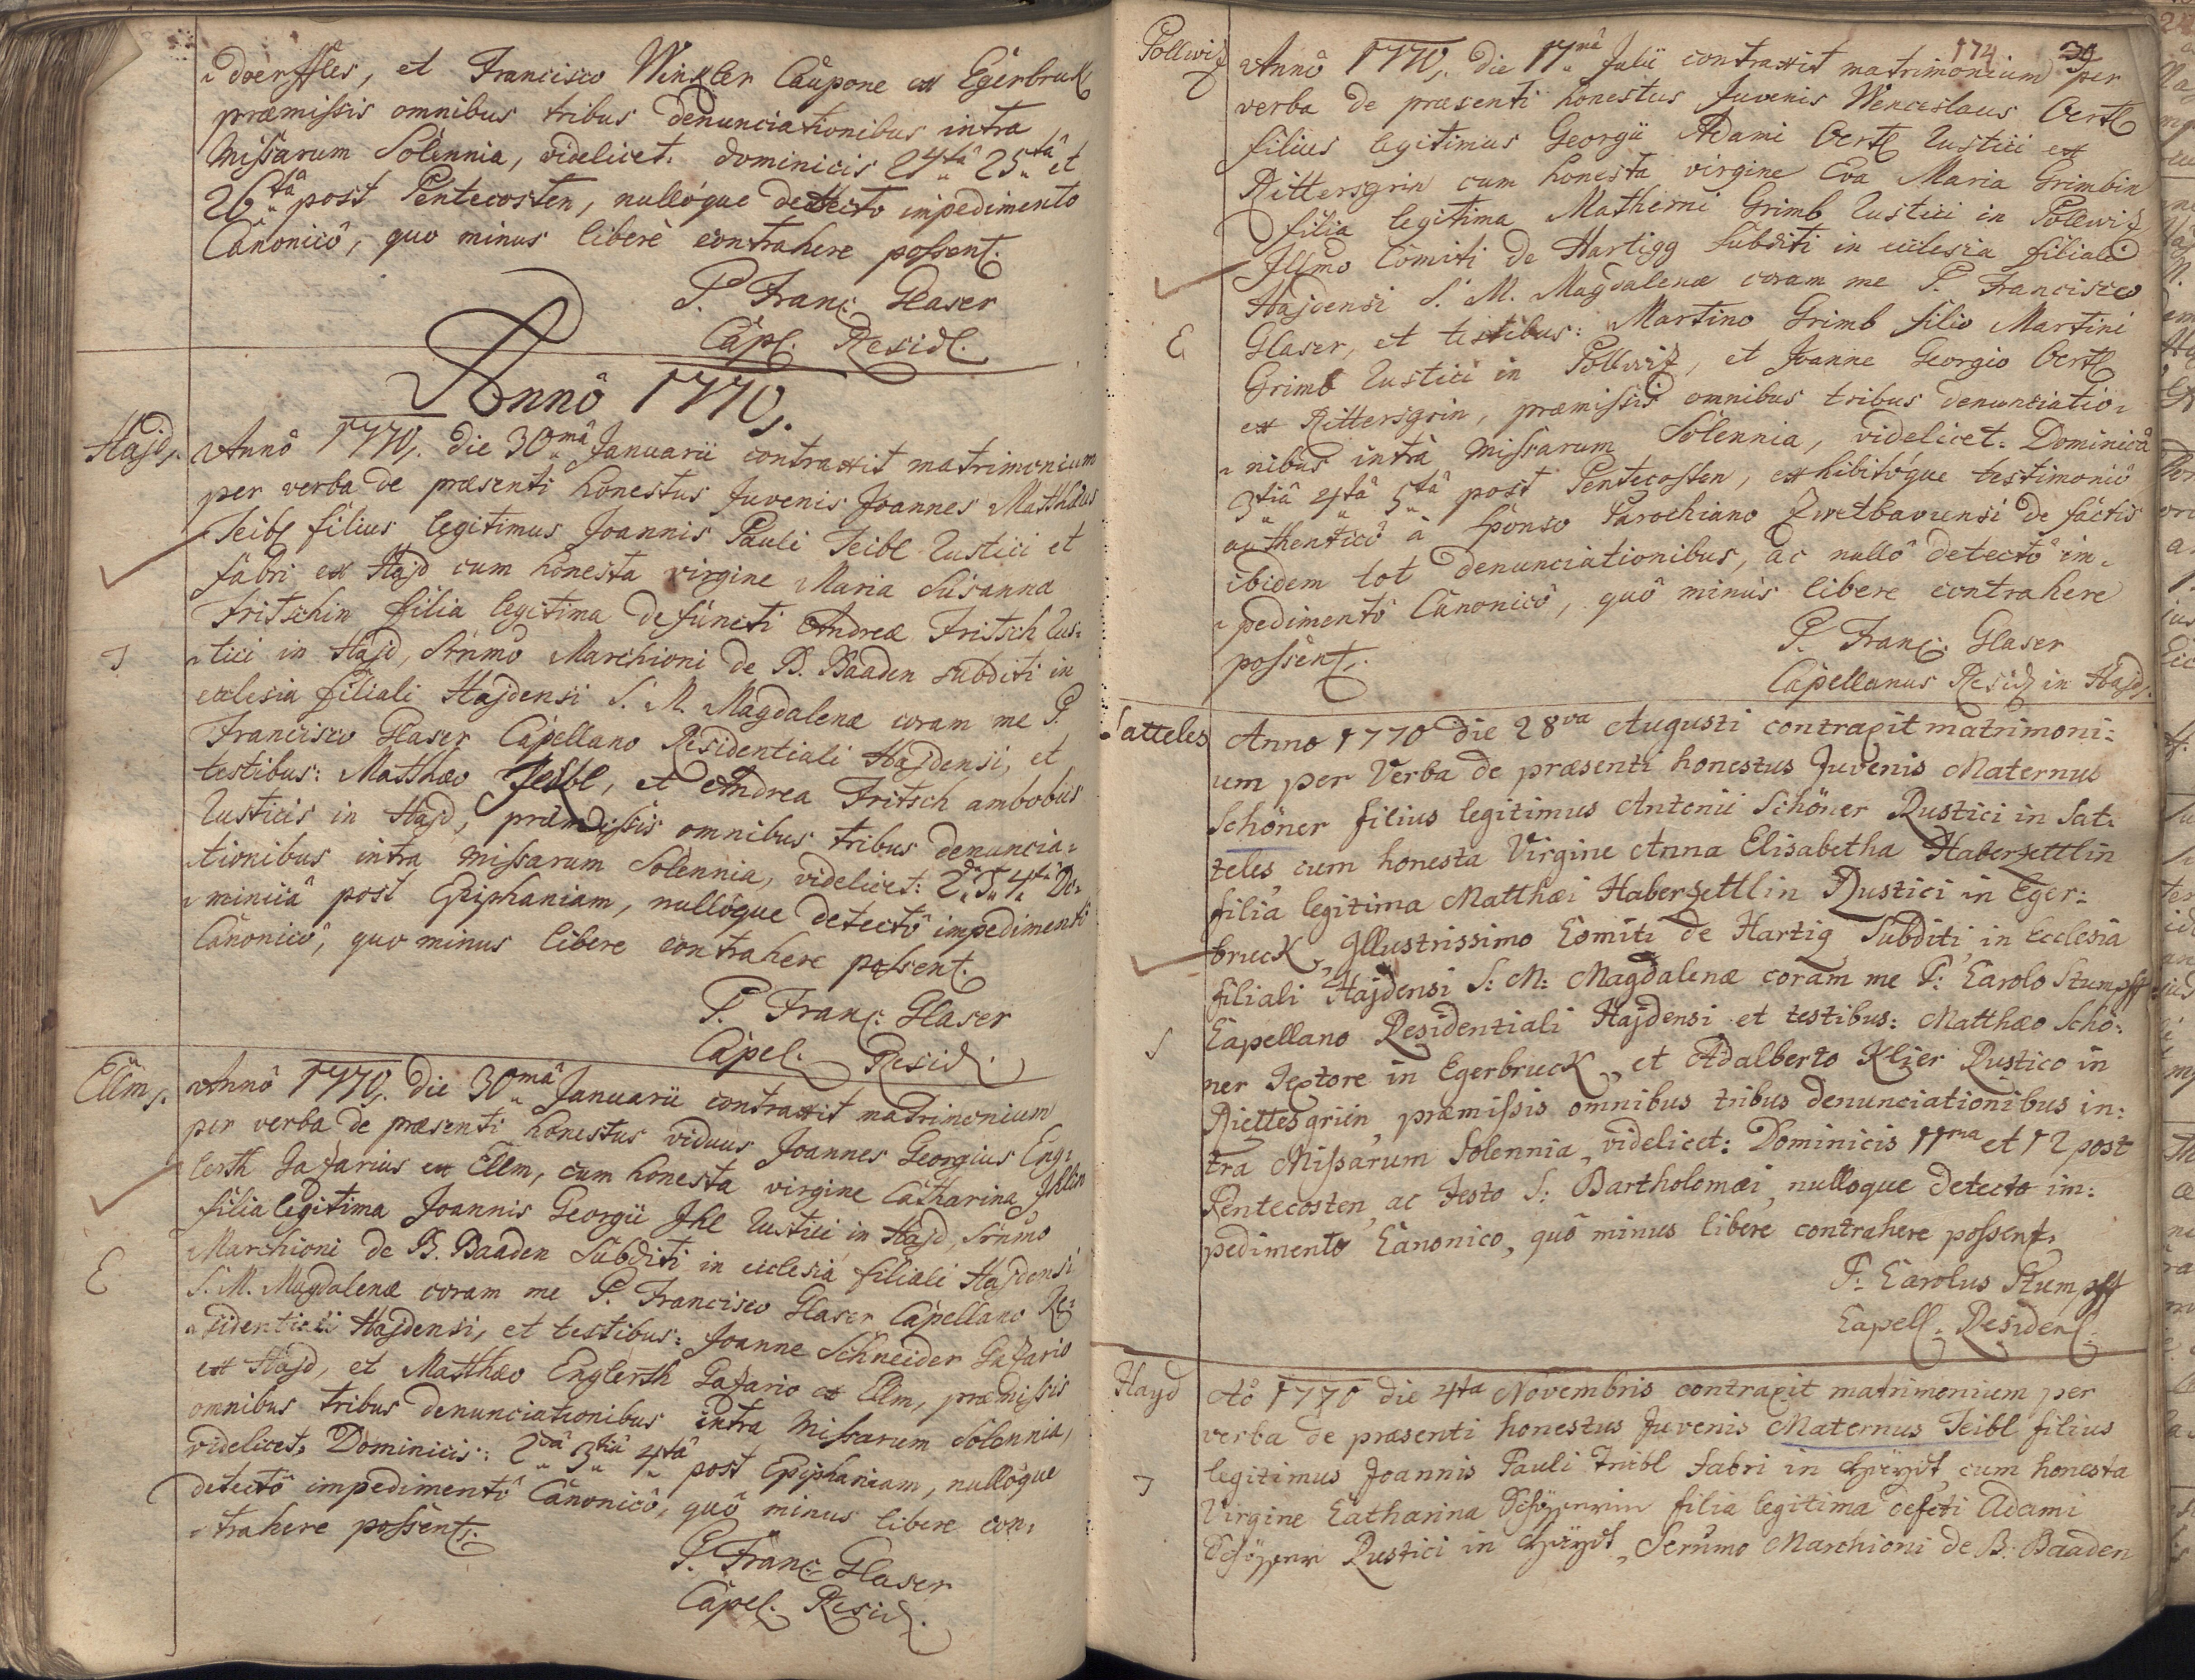 doerffles, et Francisco Winkler Caupone ex Egerbruk
præmissis omnibus tribus denunciationibus intra
Missarum Solennia, videlicet: dominicis 24tâ 25tâ et
26tâ post Pentecosten, nullóque detecto impedimento
Canonicô, quo minus liberè contrahere possent.
P. Franc: Glaser
Capl. Residl.
Annô 1770.
Hajd.
Annô 1770. die 30mâ Januarii contraxit matrimonium
per verba de præsenti honestus Juvenis Joannes Matthæus
Teibl filius legitimus Joannis Pauli Teibl Rustici et
fabri ex Hajd cum honesta virgine Maria Susanna
Fritschin filia legitima defuncti Andreæ Fritsch Rus:
tici in Hajd, Srnmo Marchioni de B. Baaden subditi in
T
ecclesia filiali Hajdensi S. M. Magdalenæ coram me P.
Francisco Glaser Capellano Residentiali Hajdensi, et
testibus: Matthæo Teibl, et Andrea Fritsch ambobus
Rusticis in Hajd, præmissis omnibus tribus denuncia:
tionibus intra Missarum Solennia, videlicet: 2dâ 3. 4tâ Do:
minicâ post Epiphaniam, nullóque detectô impedimentô
Canonicô, quo minus libere contrahere possent.
P. Franc: Glaser
Capel. Resid.
Ellm.
Annô 1770. die 30mâ Januarii contraxit matrimonium
per verba de præsenti honestus viduus Joannes Georgius Eng:
lerth Gazarius ex Ellm, cum honesta virgine Catharina Ihlin
filia legitima Joannis Georgii Ihl Rustici in Hajd, Srnmo
Marchioni de B. Baaden Subditi in ecclesia filiali Hajdensi
E
S. M. Magdalenæ coram me P. Francisco Glaser Capellano Re:
sidentiali Hajdensi, et testibus: Joanne Schneider Gazario
ex Hajd, et Matthæo Englerth Gazario ex Ellm, præmissis
omnibus tribus denunciationibus intra Missarum Solennia,
videlicet: Dominicis: 2dâ 3tiâ 4tâ post Epiphaniam, nullóque
detectô impedimentô Canonicô, quô minus libere con:
trahere possent.
P. Franc: Glaser
Capel. Resid.
174
Pollwiz
Annô 1770. die 17mâ Julii contraxit matrimonium per
verba de præsenti honestus Juvenis Wenceslaus Oertl
filius legitimus Georgii Adami Oertl Rustici ex
Rittersgrin cum honesta virgine Eva Maria Grimbin
filia legitima Matherni Grimb Rustici in Pollwiz
Illmo Comiti de Hartigg Subditi in ecclesia filiali
Hajdensi S. M. Magdalenæ coram me P. Francisco
E
Glaser, et testibus: Martino Grimb filio Martini
Grimb Rustici in Pollwiz, et Joanne Georgio Oertl
ex Rittersgrin, præmissis omnibus tribus denunciatio:
nibus intrà Missarum Solennia, videlicet: Dominicâ
3tiâ 4tâ 5tâ post Pentecosten, exhibitóque testimoniô
authenticô à Sponso Parochiano Zwetbaviensi de factis
ibidem tot denunciationibus, ac nullô detectô im:
pedimentô Canonicô, quô minùs libere contrahere
possent.
P. Franc: Glaser
Capellanus Resid in Hajd.
Satteles
Anno 1770 die 28va Augusti contraxit matrimoni:
um per Verba de præsenti honestus Juvenis Maternus
Schöner filius legitimus Antonii Schöner Rustici in Sat:
teles, cum honesta Virgine Anna Elisabetha Haberzettlin
filia legitima Matthæi Haberzettlin Rustici in Eger:
bruck, Illustrissimo Comiti de Hartig Subditi, in Ecclesia
filiali Hajdensi S: M: Magdalenæ coram me P: Carolo Stumpff
Capellano Residentiali Hajdensi et testibus: Matthæo Schö:
S
ner Textore in Egerbruck, et Adalberto Klier Rustico in
Riettesgriin, præmissis omnibus tribus denunciationibus in:
tra Missarum Solennia, videlicet: Dominicis 11ma et 12 post
Pentecosten, ac Festo S: Bartholomæi, nulloque detecto im:
pedimento Canonico, quô minus libere contrahere possent.
P: Carolus Stumpff
Capell: Residenl.
Hayd
Aô 1770 die 4ta Novembris contraxit matrimonium per
verba de præsenti honestus Juvenis Maternus Teibl filius
legitimus Joannis Pauli Teibl Fabri in Heydt, cum honesta
T
Virgine Catharina filia legitima defcti Adami
Rustici in Heydt, Serṁmo Marchioni de B: Baaden